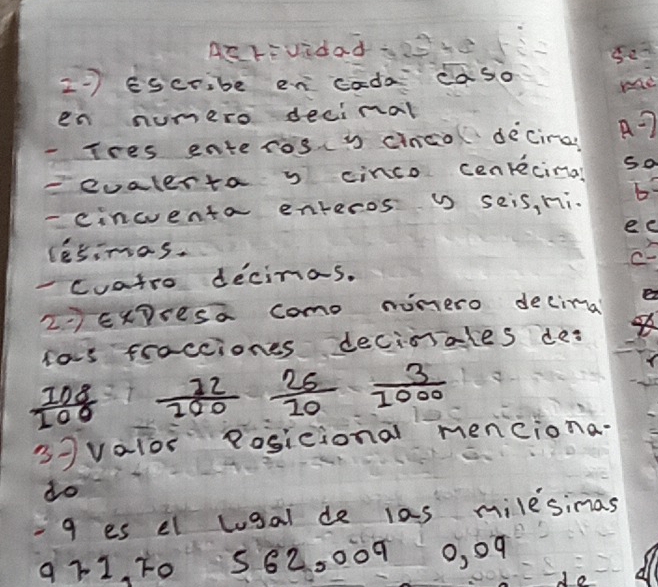 Actividad
1-) Escribe en cada caso
en numero decimal
- Tres enteros y cinco décimas
- cualerta y cinco centécimas
- cincuenta enteros y seis, mi-
lésimas.
- cuatro décimas.
2-) Expresa como número decima
las fracciones decimales de:
108/100 32/100 26/10 3/1000
3-) valor Posicional menciona-
do
- 9 es el lugal de las milésimas
971,70 562,009 0,09